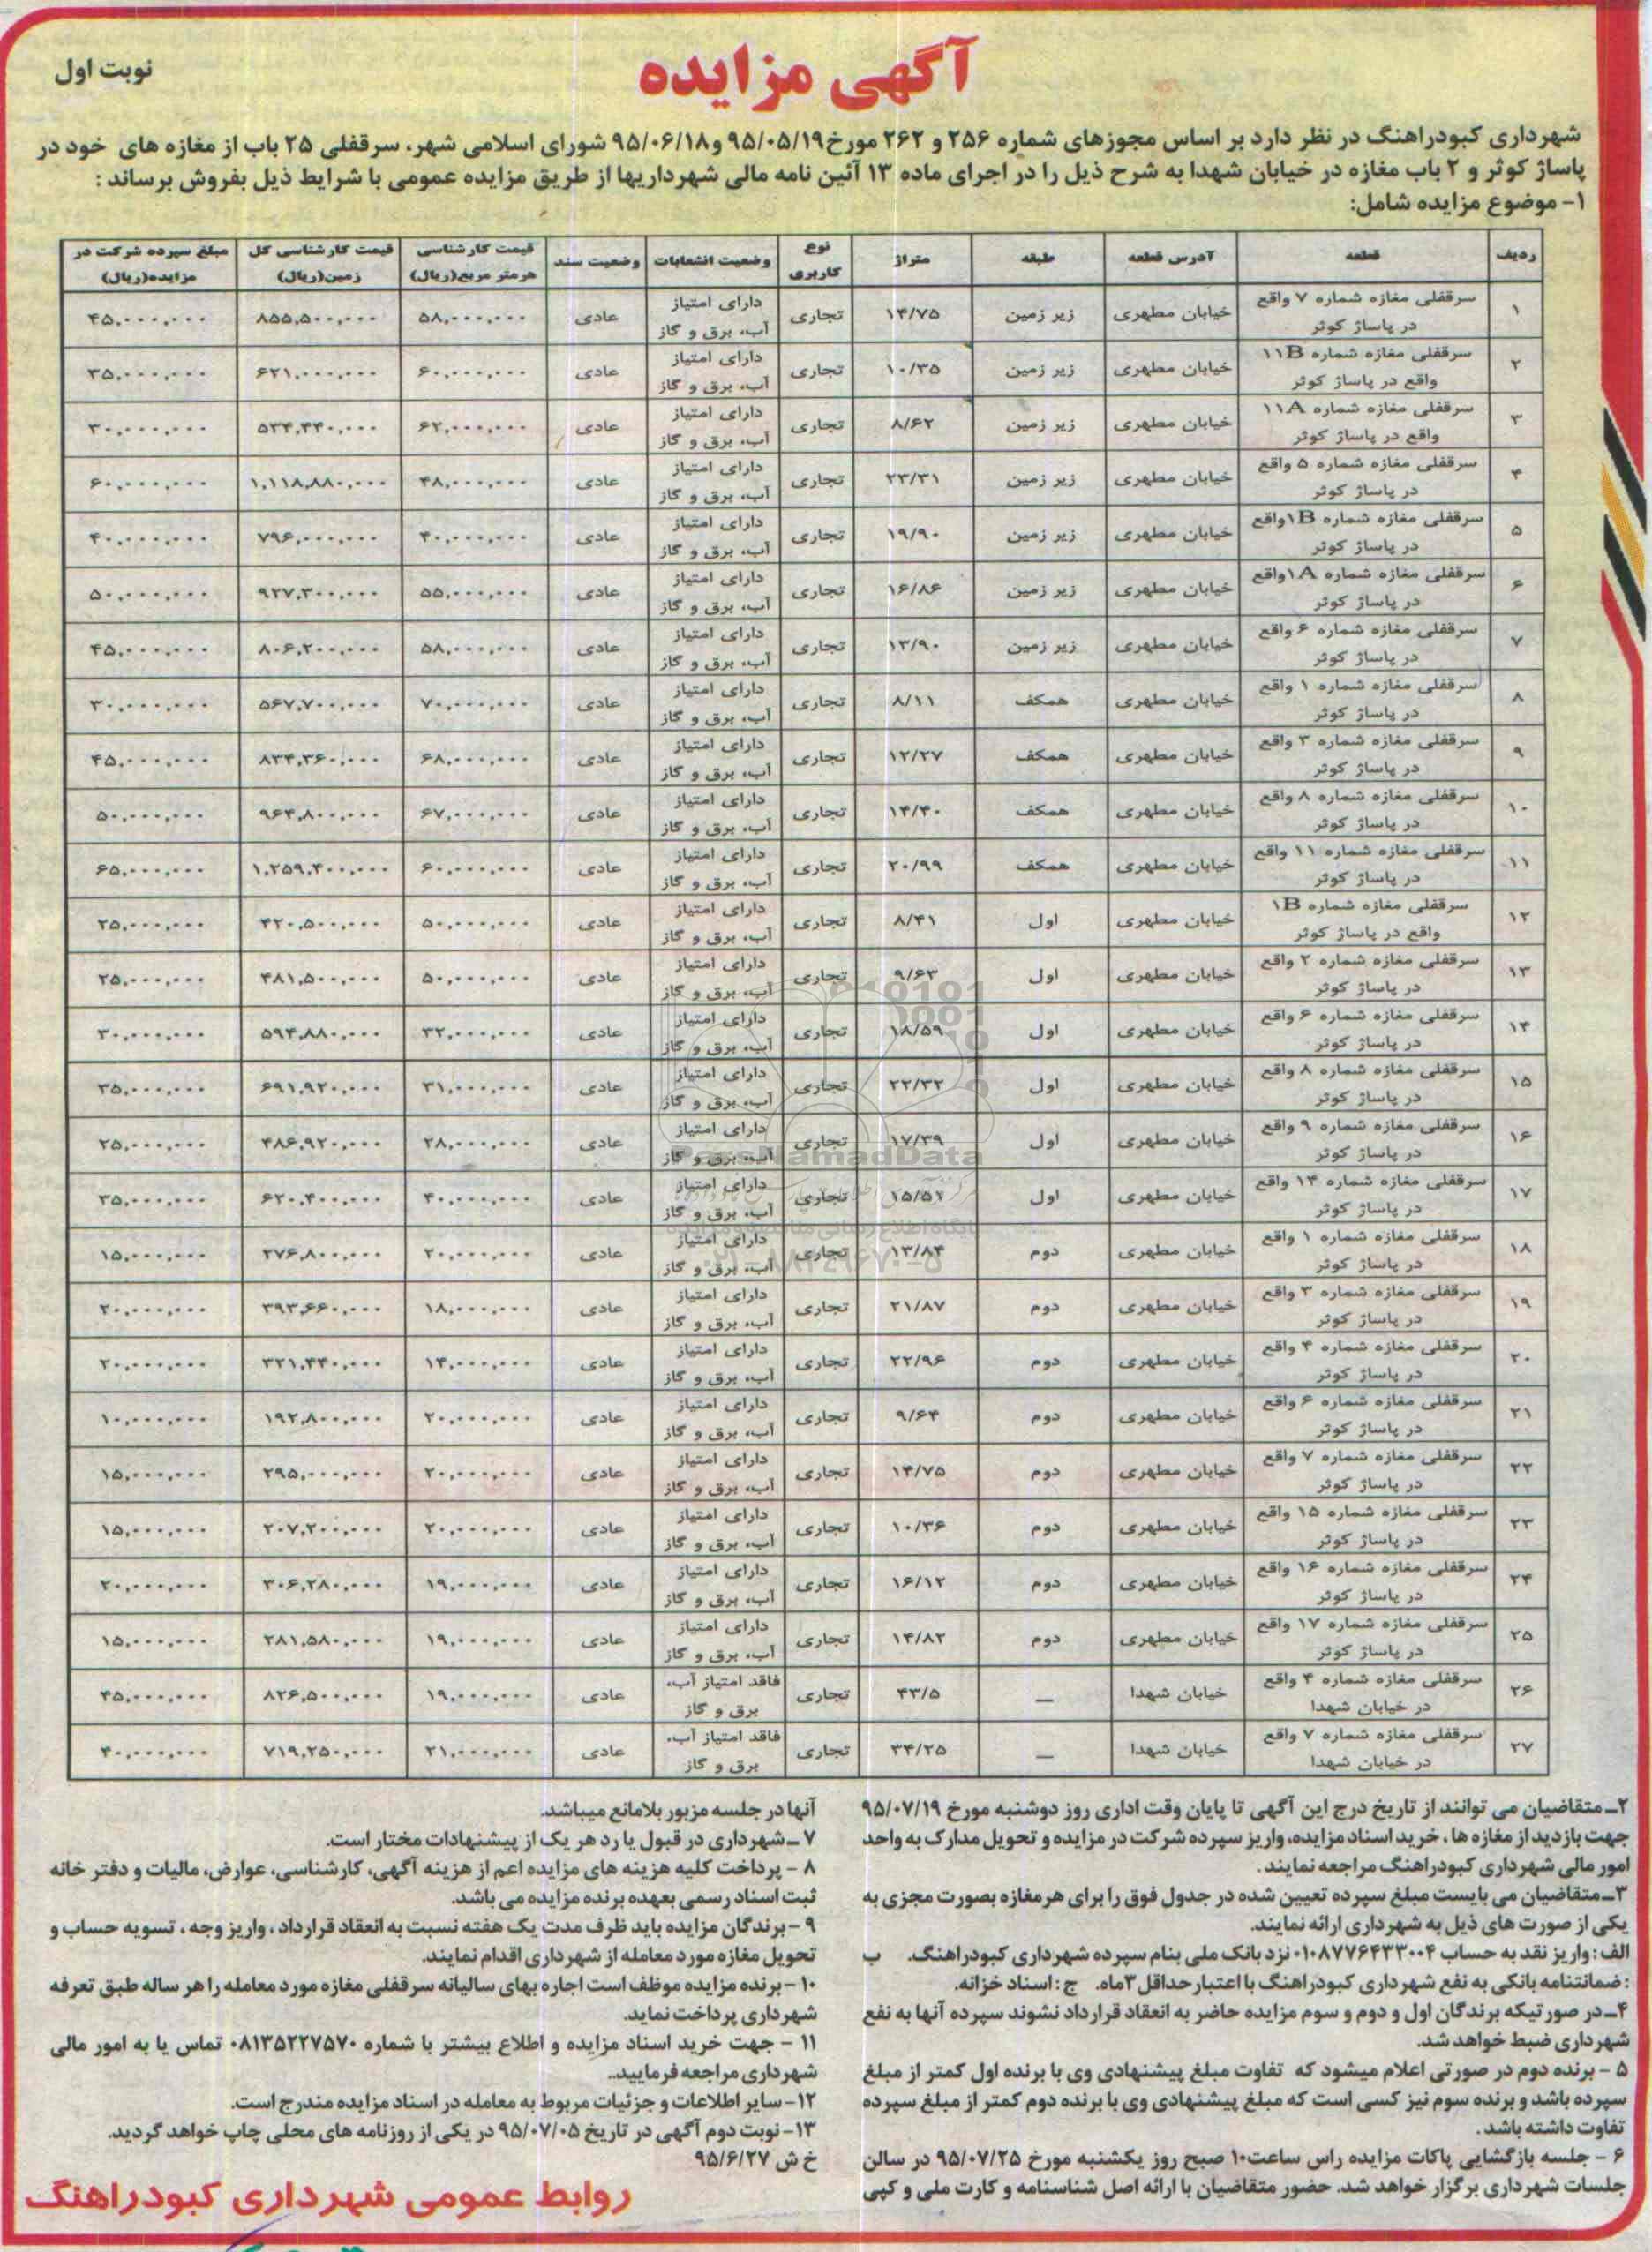 آگهی مزایده
نوبت اول
شهرداری کبودراهنگ در نظر دارد بر اساس مجوزهای شماره ۲۵۶ و ۲۶۲ مورخ ۹۵/۰۵/۱۹ و ۹۵/۰۶/۱۸ شورای اسلامی شهر، سرقفلی ۲۵ باب از مغازه های خود در
پاساژ کوثر و ۲ باب مغازه در خیابان شهدا به شرح ذیل را در اجرای ماده ۱۳ آئین نامه مالی شهرداریها از طریق مزایده عمومی با شرایط ذیل بفروش برساند :
۱- موضوع مزایده شامل:
ردیف | قطعه | آدرس قطعه | طبقه | متراژ | نوع کاربری | وضعیت انشعابات | وضعیت سند | قیمت کارشناسی هرمتر مربع(ریال) | قیمت کارشناسی کل زمین(ریال) | مبلغ سپرده شرکت در مزایده(ریال)
۱ | سرقفلی مغازه شماره ۷ واقع در پاساژ کوثر | خیابان مطهری | زیر زمین | ۱۴/۷۵ | تجاری | دارای امتیاز آب، برق و گاز | عادی | ۵۸,۰۰۰,۰۰۰ | ۸۵۵,۵۰۰,۰۰۰ | ۴۵,۰۰۰,۰۰۰
۲ | سرقفلی مغازه شماره ۱۱B واقع در پاساژ کوثر | خیابان مطهری | زیر زمین | ۱۰/۳۵ | تجاری | دارای امتیاز آب، برق و گاز | عادی | ۶۰,۰۰۰,۰۰۰ | ۶۲۱,۰۰۰,۰۰۰ | ۳۵,۰۰۰,۰۰۰
۳ | سرقفلی مغازه شماره ۱۱A واقع در پاساژ کوثر | خیابان مطهری | زیر زمین | ۸/۶۲ | تجاری | دارای امتیاز آب، برق و گاز | عادی | ۶۲,۰۰۰,۰۰۰ | ۵۳۴,۴۴۰,۰۰۰ | ۳۰,۰۰۰,۰۰۰
۴ | سرقفلی مغازه شماره ۵ واقع در پاساژ کوثر | خیابان مطهری | زیر زمین | ۲۳/۳۱ | تجاری | دارای امتیاز آب، برق و گاز | عادی | ۴۸,۰۰۰,۰۰۰ | ۱,۱۱۸,۸۸۰,۰۰۰ | ۶۰,۰۰۰,۰۰۰
۵ | سرقفلی مغازه شماره ۱B واقع در پاساژ کوثر | خیابان مطهری | زیر زمین | ۱۹/۹۰ | تجاری | دارای امتیاز آب، برق و گاز | عادی | ۴۰,۰۰۰,۰۰۰ | ۷۹۶,۰۰۰,۰۰۰ | ۴۰,۰۰۰,۰۰۰
۶ | سرقفلی مغازه شماره ۱A واقع در پاساژ کوثر | خیابان مطهری | زیر زمین | ۱۶/۸۶ | تجاری | دارای امتیاز آب، برق و گاز | عادی | ۵۵,۰۰۰,۰۰۰ | ۹۲۷,۳۰۰,۰۰۰ | ۵۰,۰۰۰,۰۰۰
۷ | سرقفلی مغازه شماره ۶ واقع در پاساژ کوثر | خیابان مطهری | زیر زمین | ۱۳/۹۰ | تجاری | دارای امتیاز آب، برق و گاز | عادی | ۵۸,۰۰۰,۰۰۰ | ۸۰۶,۲۰۰,۰۰۰ | ۴۵,۰۰۰,۰۰۰
۸ | سرقفلی مغازه شماره ۱ واقع در پاساژ کوثر | خیابان مطهری | همکف | ۸/۱۱ | تجاری | دارای امتیاز آب، برق و گاز | عادی | ۷۰,۰۰۰,۰۰۰ | ۵۶۷,۷۰۰,۰۰۰ | ۳۰,۰۰۰,۰۰۰
۹ | سرقفلی مغازه شماره ۳ واقع در پاساژ کوثر | خیابان مطهری | همکف | ۱۲/۲۷ | تجاری | دارای امتیاز آب، برق و گاز | عادی | ۶۸,۰۰۰,۰۰۰ | ۸۳۴,۳۶۰,۰۰۰ | ۴۵,۰۰۰,۰۰۰
۱۰ | سرقفلی مغازه شماره ۸ واقع در پاساژ کوثر | خیابان مطهری | همکف | ۱۴/۴۰ | تجاری | دارای امتیاز آب، برق و گاز | عادی | ۶۷,۰۰۰,۰۰۰ | ۹۶۴,۸۰۰,۰۰۰ | ۵۰,۰۰۰,۰۰۰
۱۱ | سرقفلی مغازه شماره ۱۱ واقع در پاساژ کوثر | خیابان مطهری | همکف | ۲۰/۹۹ | تجاری | دارای امتیاز آب، برق و گاز | عادی | ۶۰,۰۰۰,۰۰۰ | ۱,۲۵۹,۴۰۰,۰۰۰ | ۶۵,۰۰۰,۰۰۰
۱۲ | سرقفلی مغازه شماره ۱B واقع در پاساژ کوثر | خیابان مطهری | اول | ۸/۴۱ | تجاری | دارای امتیاز آب، برق و گاز | عادی | ۵۰,۰۰۰,۰۰۰ | ۴۲۰,۵۰۰,۰۰۰ | ۲۵,۰۰۰,۰۰۰
۱۳ | سرقفلی مغازه شماره ۲ واقع در پاساژ کوثر | خیابان مطهری | اول | ۹/۶۳ | تجاری | دارای امتیاز آب، برق و گاز | عادی | ۵۰,۰۰۰,۰۰۰ | ۴۸۱,۵۰۰,۰۰۰ | ۲۵,۰۰۰,۰۰۰
۱۴ | سرقفلی مغازه شماره ۶ واقع در پاساژ کوثر | خیابان مطهری | اول | ۱۸/۵۹ | تجاری | دارای امتیاز آب، برق و گاز | عادی | ۳۲,۰۰۰,۰۰۰ | ۵۹۴,۸۸۰,۰۰۰ | ۳۰,۰۰۰,۰۰۰
۱۵ | سرقفلی مغازه شماره ۸ واقع در پاساژ کوثر | خیابان مطهری | اول | ۲۲/۳۲ | تجاری | دارای امتیاز آب، برق و گاز | عادی | ۳۱,۰۰۰,۰۰۰ | ۶۹۱,۹۲۰,۰۰۰ | ۳۵,۰۰۰,۰۰۰
۱۶ | سرقفلی مغازه شماره ۹ واقع در پاساژ کوثر | خیابان مطهری | اول | ۱۷/۳۹ | تجاری | دارای امتیاز آب، برق و گاز | عادی | ۲۸,۰۰۰,۰۰۰ | ۴۸۶,۹۲۰,۰۰۰ | ۲۵,۰۰۰,۰۰۰
۱۷ | سرقفلی مغازه شماره ۱۴ واقع در پاساژ کوثر | خیابان مطهری | اول | ۱۵/۵۱ | تجاری | دارای امتیاز آب، برق و گاز | عادی | ۴۰,۰۰۰,۰۰۰ | ۶۲۰,۴۰۰,۰۰۰ | ۳۵,۰۰۰,۰۰۰
۱۸ | سرقفلی مغازه شماره ۱ واقع در پاساژ کوثر | خیابان مطهری | دوم | ۱۳/۸۴ | تجاری | دارای امتیاز آب، برق و گاز | عادی | ۲۰,۰۰۰,۰۰۰ | ۲۷۶,۸۰۰,۰۰۰ | ۱۵,۰۰۰,۰۰۰
۱۹ | سرقفلی مغازه شماره ۳ واقع در پاساژ کوثر | خیابان مطهری | دوم | ۲۱/۸۷ | تجاری | دارای امتیاز آب، برق و گاز | عادی | ۱۸,۰۰۰,۰۰۰ | ۳۹۳,۶۶۰,۰۰۰ | ۲۰,۰۰۰,۰۰۰
۲۰ | سرقفلی مغازه شماره ۴ واقع در پاساژ کوثر | خیابان مطهری | دوم | ۲۲/۹۶ | تجاری | دارای امتیاز آب، برق و گاز | عادی | ۱۴,۰۰۰,۰۰۰ | ۳۲۱,۴۴۰,۰۰۰ | ۲۰,۰۰۰,۰۰۰
۲۱ | سرقفلی مغازه شماره ۶ واقع در پاساژ کوثر | خیابان مطهری | دوم | ۹/۶۴ | تجاری | دارای امتیاز آب، برق و گاز | عادی | ۲۰,۰۰۰,۰۰۰ | ۱۹۲,۸۰۰,۰۰۰ | ۱۰,۰۰۰,۰۰۰
۲۲ | سرقفلی مغازه شماره ۷ واقع در پاساژ کوثر | خیابان مطهری | دوم | ۱۴/۷۵ | تجاری | دارای امتیاز آب، برق و گاز | عادی | ۲۰,۰۰۰,۰۰۰ | ۲۹۵,۰۰۰,۰۰۰ | ۱۵,۰۰۰,۰۰۰
۲۳ | سرقفلی مغازه شماره ۱۵ واقع در پاساژ کوثر | خیابان مطهری | دوم | ۱۰/۳۶ | تجاری | دارای امتیاز آب، برق و گاز | عادی | ۲۰,۰۰۰,۰۰۰ | ۲۰۷,۲۰۰,۰۰۰ | ۱۵,۰۰۰,۰۰۰
۲۴ | سرقفلی مغازه شماره ۱۶ واقع در پاساژ کوثر | خیابان مطهری | دوم | ۱۶/۱۲ | تجاری | دارای امتیاز آب، برق و گاز | عادی | ۱۹,۰۰۰,۰۰۰ | ۳۰۶,۲۸۰,۰۰۰ | ۲۰,۰۰۰,۰۰۰
۲۵ | سرقفلی مغازه شماره ۱۷ واقع در پاساژ کوثر | خیابان مطهری | دوم | ۱۴/۸۲ | تجاری | دارای امتیاز آب، برق و گاز | عادی | ۱۹,۰۰۰,۰۰۰ | ۲۸۱,۵۸۰,۰۰۰ | ۱۵,۰۰۰,۰۰۰
۲۶ | سرقفلی مغازه شماره ۴ واقع در خیابان شهدا | خیابان شهدا | — | ۴۳/۵ | تجاری | فاقد امتیاز آب، برق و گاز | عادی | ۱۹,۰۰۰,۰۰۰ | ۸۲۶,۵۰۰,۰۰۰ | ۴۵,۰۰۰,۰۰۰
۲۷ | سرقفلی مغازه شماره ۷ واقع در خیابان شهدا | خیابان شهدا | — | ۳۴/۲۵ | تجاری | فاقد امتیاز آب، برق و گاز | عادی | ۲۱,۰۰۰,۰۰۰ | ۷۱۹,۲۵۰,۰۰۰ | ۴۰,۰۰۰,۰۰۰
۲ـ متقاضیان می توانند از تاریخ درج این آگهی تا پایان وقت اداری روز دوشنبه مورخ ۹۵/۰۷/۱۹
جهت بازدید از مغازه ها، خرید اسناد مزایده، واریز سپرده شرکت در مزایده و تحویل مدارک به واحد
امور مالی شهرداری کبودراهنگ مراجعه نمایند.
۳ـ متقاضیان می بایست مبلغ سپرده تعیین شده در جدول فوق را برای هر مغازه بصورت مجزی به
یکی از صورت های ذیل به شهرداری ارائه نمایند.
الف: واریز نقد به حساب ۰۱۰۸۷۷۶۴۳۳۰۰۴ نزد بانک ملی بنام سپرده شهرداری کبودراهنگ. ب
: ضمانتنامه بانکی به نفع شهرداری کبودراهنگ با اعتبار حداقل ۳ ماه. ج: اسناد خزانه.
۴ـ در صورتیکه برندگان اول و دوم و سوم مزایده حاضر به انعقاد قرارداد نشوند سپرده آنها به نفع
شهرداری ضبط خواهد شد.
۵ - برنده دوم در صورتی اعلام میشود که تفاوت مبلغ پیشنهادی وی با برنده اول کمتر از مبلغ
سپرده باشد و برنده سوم نیز کسی است که مبلغ پیشنهادی وی با برنده دوم کمتر از مبلغ سپرده
تفاوت داشته باشد.
۶ - جلسه بازگشایی پاکات مزایده راس ساعت ۱۰ صبح روز یکشنبه مورخ ۹۵/۰۷/۲۵ در سالن
جلسات شهرداری برگزار خواهد شد. حضور متقاضیان با ارائه اصل شناسنامه و کارت ملی و کپی
آنها در جلسه مزبور بلامانع میباشد.
۷ ـ شهرداری در قبول یا رد هر یک از پیشنهادات مختار است.
۸ - پرداخت کلیه هزینه های مزایده اعم از هزینه آگهی، کارشناسی، عوارض، مالیات و دفتر خانه
ثبت اسناد رسمی بعهده برنده مزایده می باشد.
۹ - برندگان مزایده باید ظرف مدت یک هفته نسبت به انعقاد قرارداد، واریز وجه، تسویه حساب و
تحویل مغازه مورد معامله از شهرداری اقدام نمایند.
۱۰ - برنده مزایده موظف است اجاره بهای سالیانه سرقفلی مغازه مورد معامله را هر ساله طبق تعرفه
شهرداری پرداخت نماید.
۱۱ - جهت خرید اسناد مزایده و اطلاع بیشتر با شماره ۰۸۱۳۵۲۲۷۵۷۰ تماس یا به امور مالی
شهرداری مراجعه فرمایید.
۱۲- سایر اطلاعات و جزئیات مربوط به معامله در اسناد مزایده مندرج است.
۱۳- نوبت دوم آگهی در تاریخ ۹۵/۰۷/۰۵ در یکی از روزنامه های محلی چاپ خواهد گردید.
خ ش ۹۵/۶/۲۷
روابط عمومی شهرداری کبودراهنگ
ParsNamadData